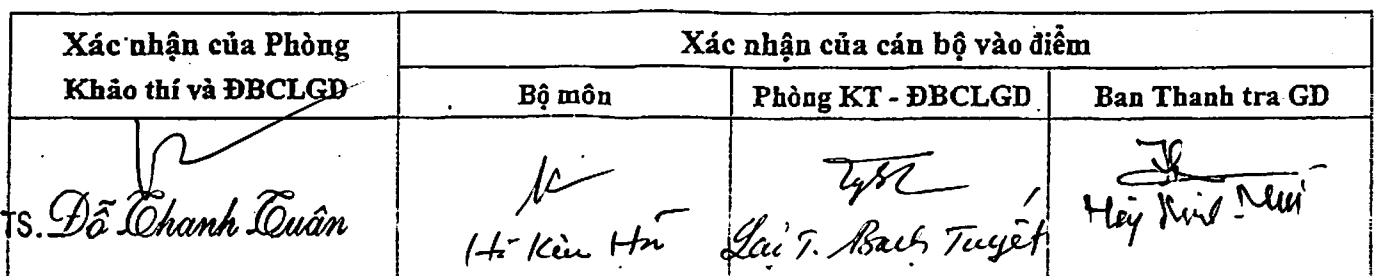 Xác nhận của Phòng
Khảo thí và ĐBCLGD
Xác nhận của cán bộ vào điểm
Bộ môn
Phòng KT - ĐBCLGD
Ban Thanh tra GD
TS. Đỗ Thanh Tuân
Lại T. Bạch Tuyết